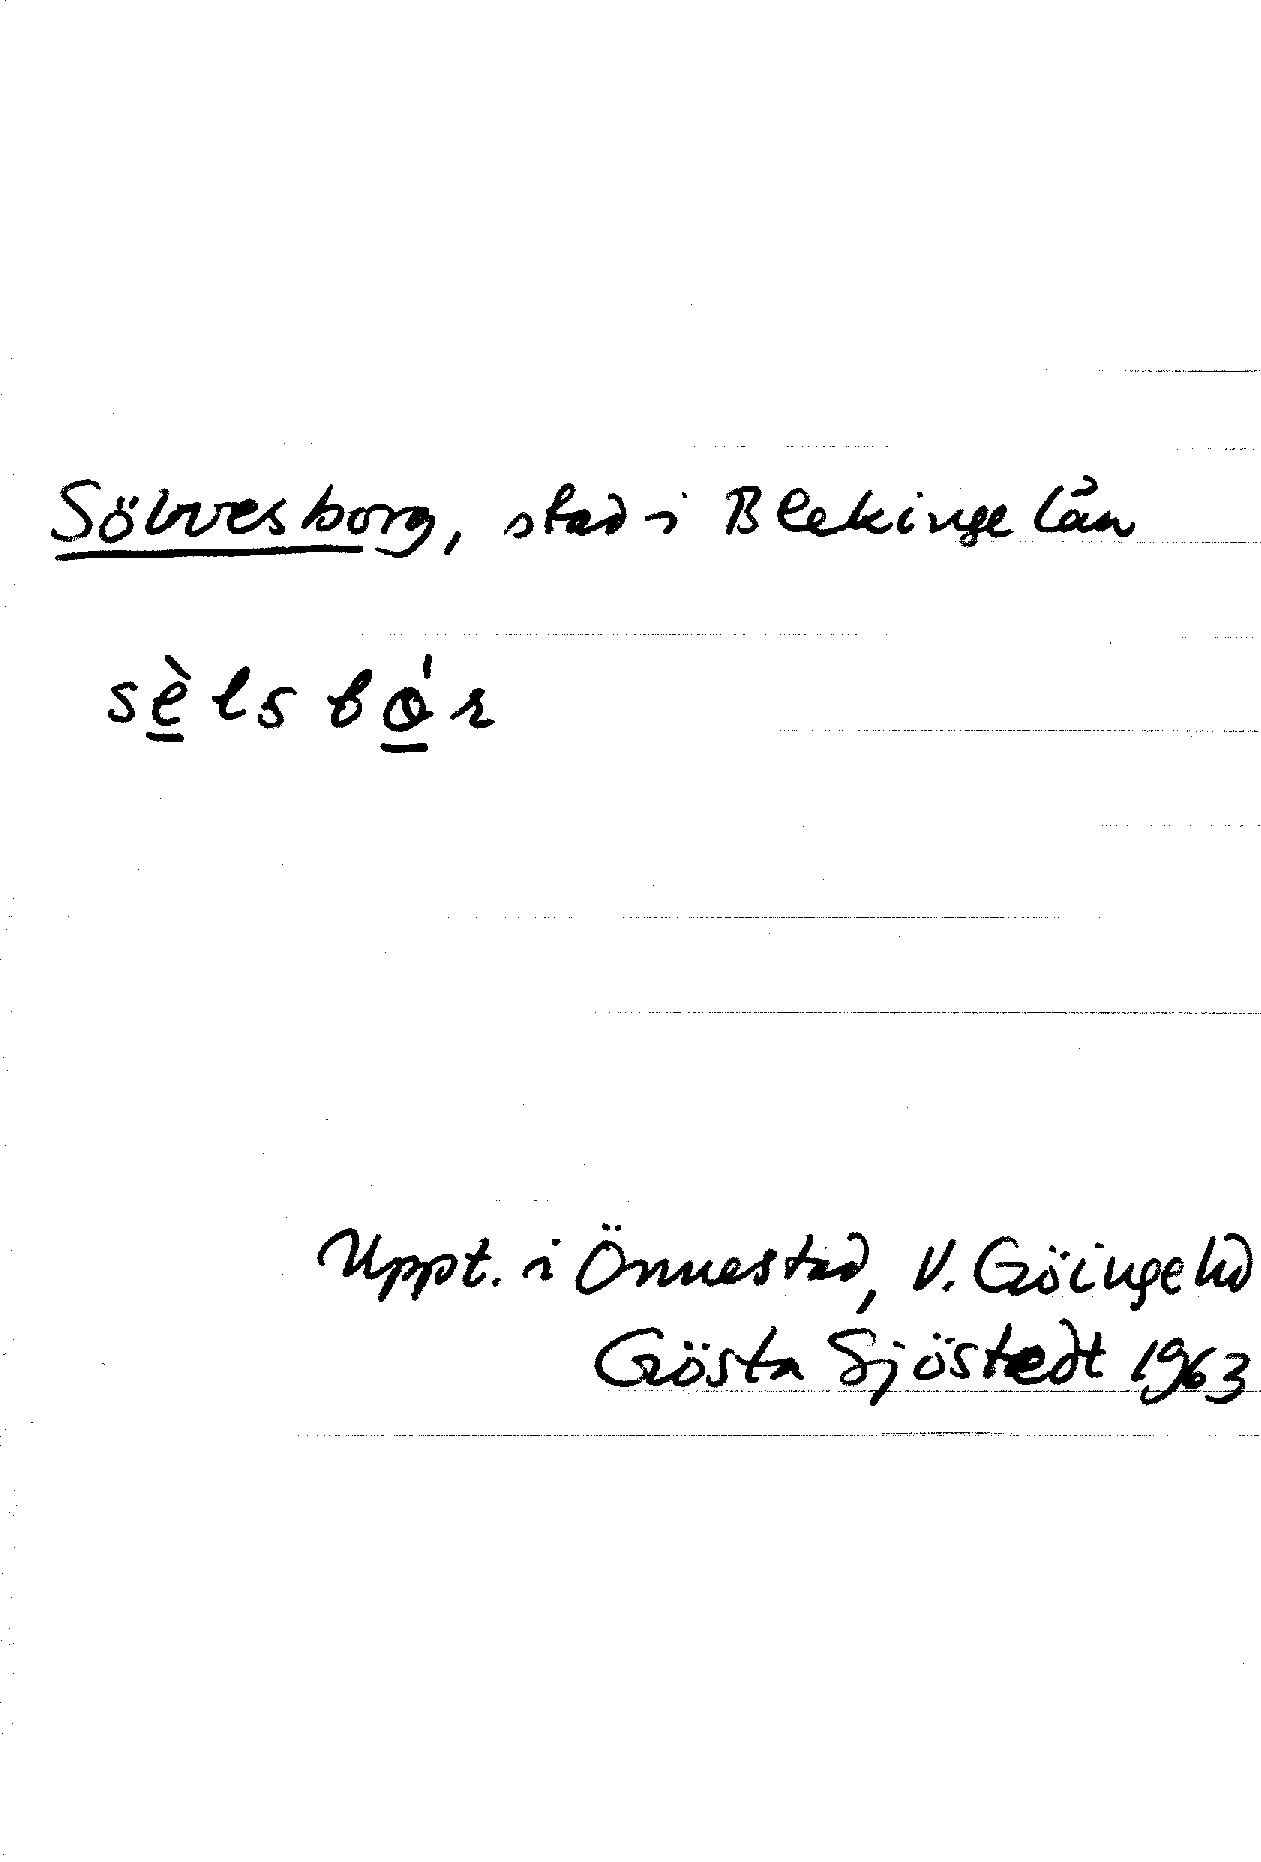 Sölvesborg, stad i Blekinge län
sèlsbór
Uppt. i Önnestad, V. Göingehd
Gösta Sjöstedt 1963